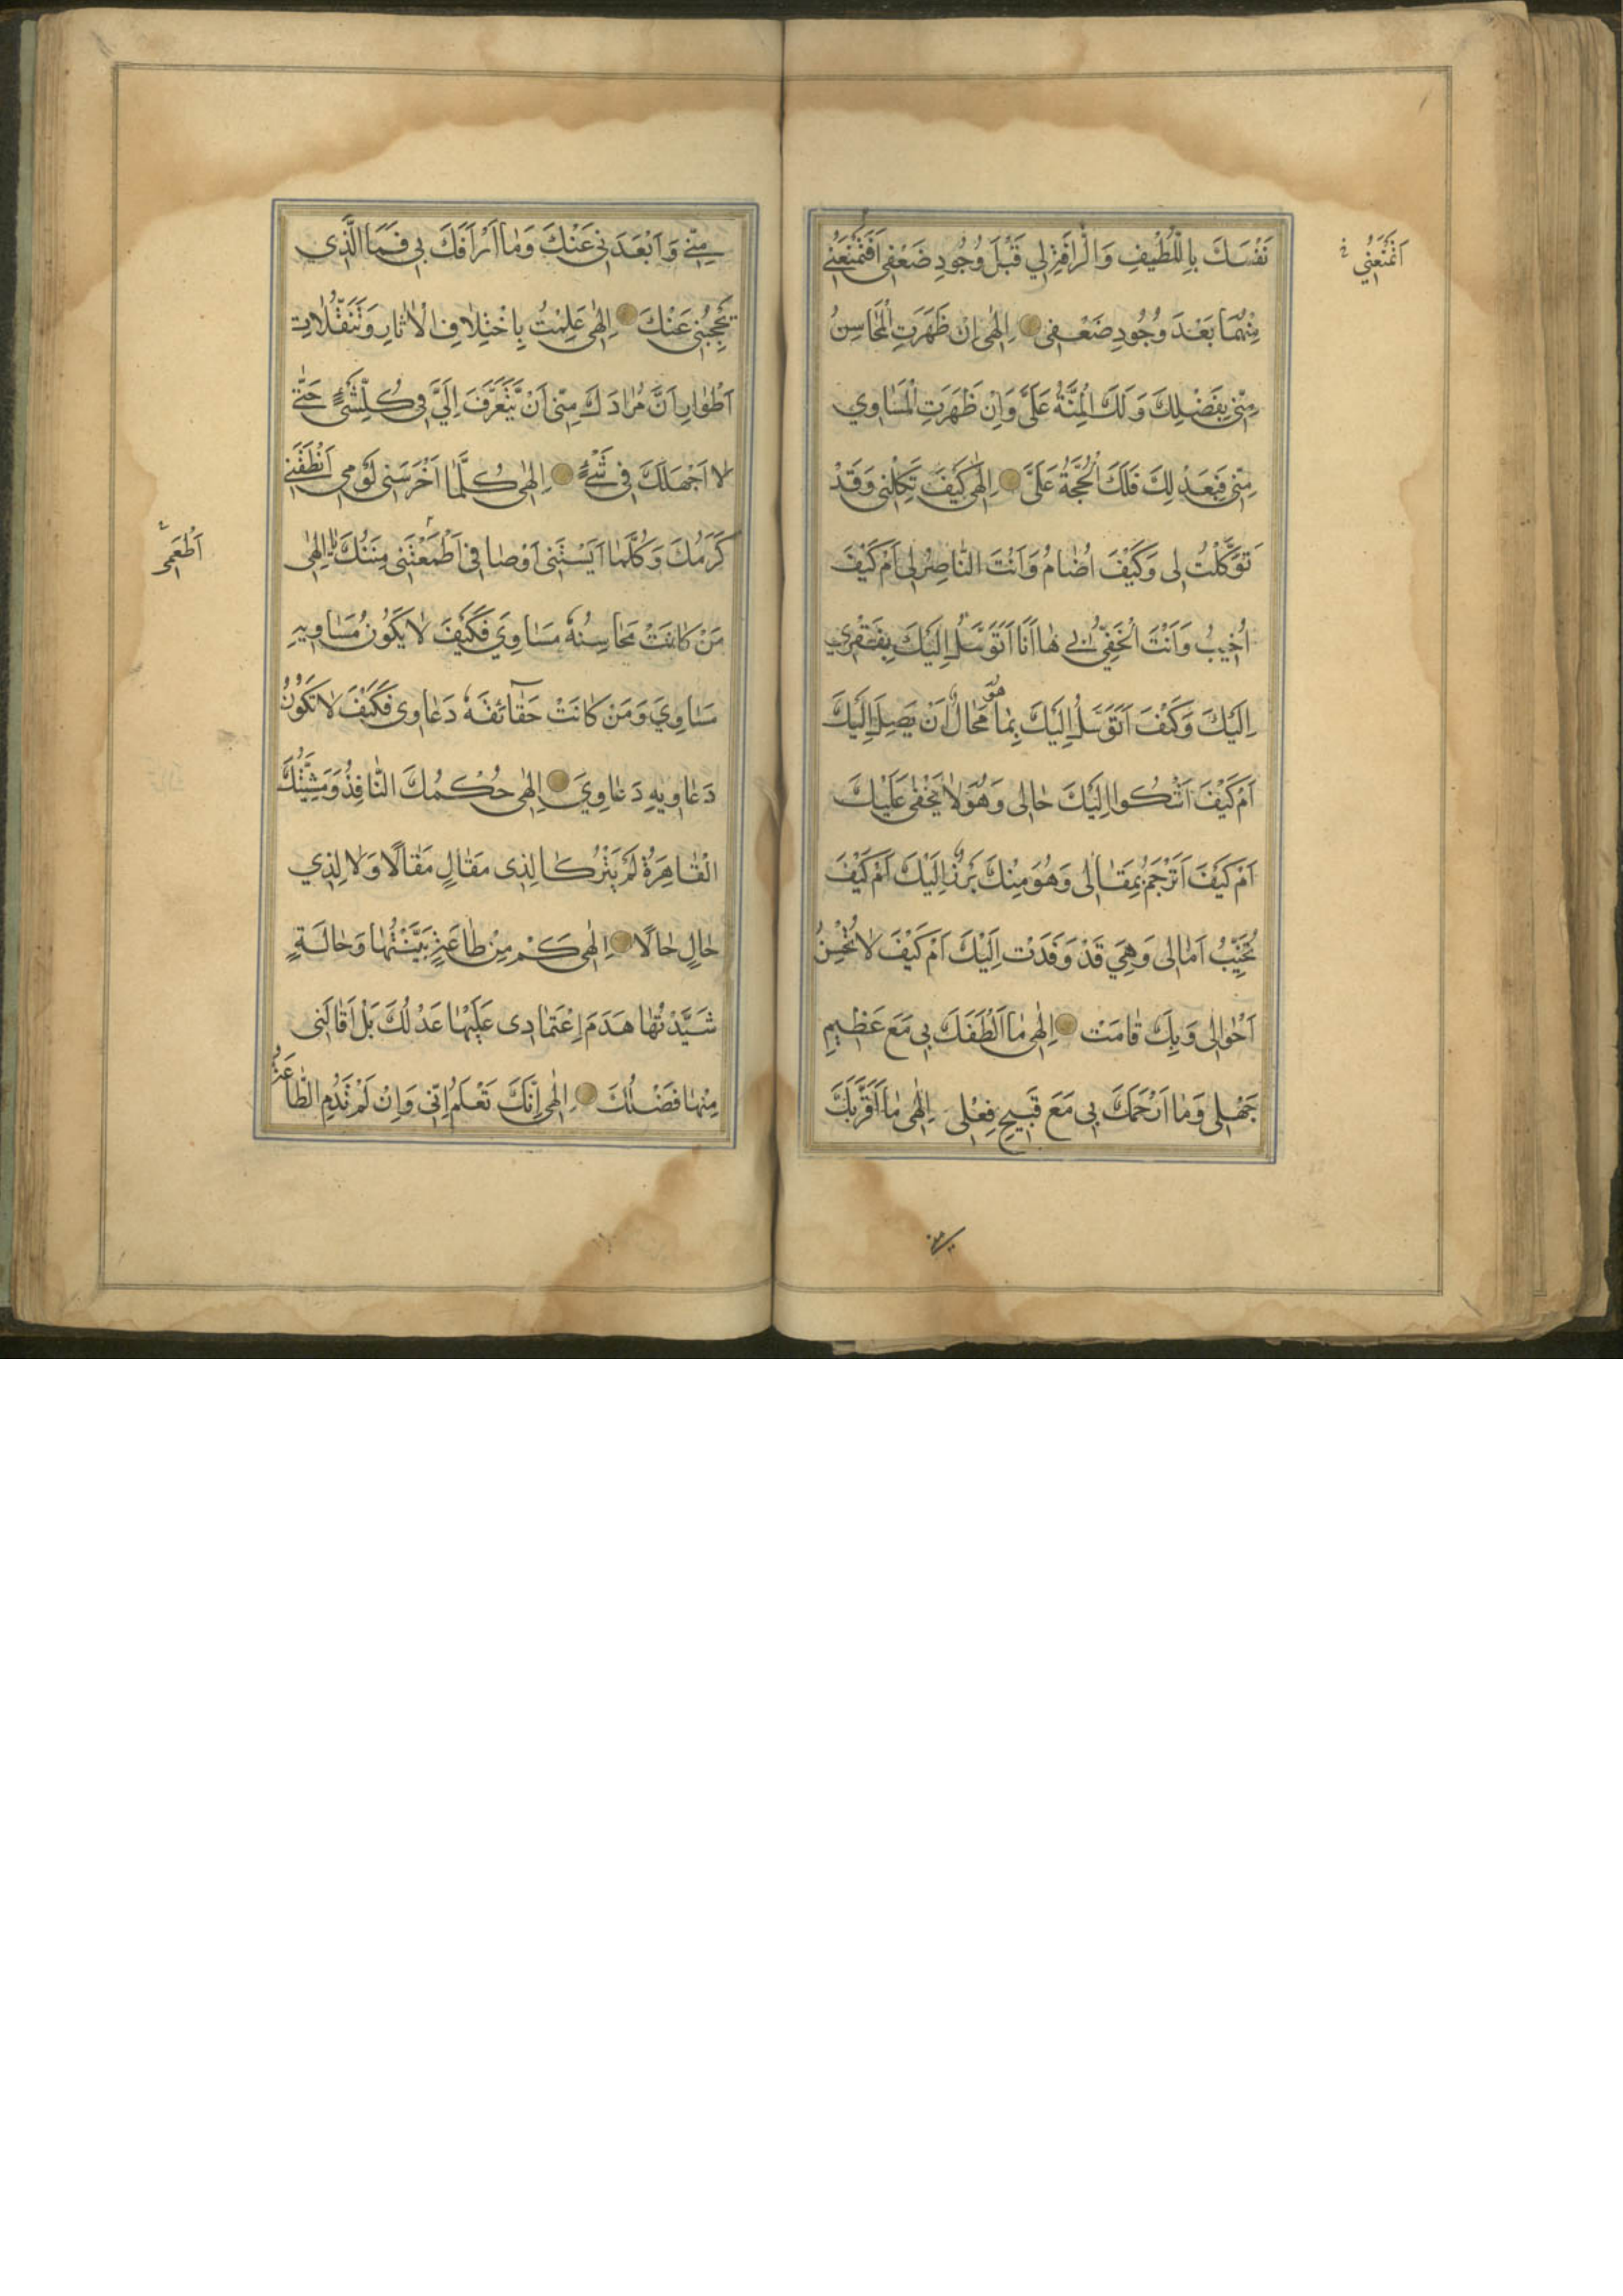 نَفْسَكَ بِاللُّطْيفِ وَالرَّافَةِ لِي قَبْلَ وُجُودِ ضَعْفِى اَفَتَمْنَعُنِي
مِنْهُمَا بَعْدَ وُجُودِ ضَعْفِى اِلٰهى اِنْ ظَهَرَتِ الْمَحَاسِنُ
مِنّى فَبِفَضْلِكَ وَلَكَ الْمِنَّةُ عَلَىَّ وَاِنْ ظَهَرَتِ الْمَسَاوِي
مِنّى فَبِعَدْلِكَ فَلَكَ الْحُجَّةُ عَلَىَّ اِلٰهى كَيْفَ تَكِلُنِى وَقَدْ
تَوَكَّلْتَ لِى وَكَيْفَ اُضَامُ وَاَنْتَ النَّاصِرُ لِى اَمْ كَيْفَ
اُخِيبُ وَاَنْتَ الْخَفِيُّ لِي هَا اَنَا اَتَوَسَّلُ اِلَيْكَ بِفَقْرِي
اِلَيْكَ وَكَيْفَ اَتَوَسَّلُ اِلَيْكَ بِمَا هُوَ مَحَالٌ اَنْ يَصِلَ اِلَيْكَ
اَمْ كَيْفَ اَشْكُوا اِلَيْكَ حَالِى وَهُوَ لَا يَخْفٰى عَلَيْكَ
اَمْ كَيْفَ اَتَرْجَمُ بِمَقَالِى وَهُوَ مِنْكَ بَرَزٌ اِلَيْكَ اَمْ كَيْفَ
تُخَيِّبُ اَمَالِى وَهِيَ قَدْ وَفَدَتْ اِلَيْكَ اَمْ كَيْفَ لَا تُحْسِنُ
اَحْوَالِى وَبِكَ قَامَتْ اِلٰهى مَا اَلْطَفَكَ بِي مَعَ عَظِيمِ
جَهْلِى وَمَا اَرْحَمَكَ بِى مَعَ قَبِيحِ فِعْلِى اِلٰهى مَا اَقْرَبَكَ
اَفَتَمْنَعُنِي
مِنّي وَاَبْعَدَنِى عَنْكَ وَمَا اَرْاَفَكَ بِي فَمَا الَّذِى
يَحْجُبُنِى عَنْكَ اِلٰهى عَلِمْتُ بِاخْتِلَافِ الْاٰثَارِ وَتَنَقُّلَاتِ
اَطْوَارِ اَنَّ مُرَادَكَ مِنّى اَنْ تَتَعَرَّفَ اِلَيَّ فِى كُلِّشَىْءٍ حَتّٰى
لَا اَجْهَلَكَ فِى شَىْءٍ اِلٰهى كُلَّمَا اَخْرَسَنِى لَؤْمِى اَنْطَقَنِي
كَرَمُكَ وَكُلَّمَا اَيَسَتْنِى اَوْصَافِى اَطْمَعَتْنِى مِنَنُكَ يَا اِلٰهى
مَنْ كَانَتْ مَحَاسِنُهُ مَسَاوِيَ فَكَيْفَ لَا يَكُونُ مَسَاوِيهِ
مَسَاوِيَ وَمَنْ كَانَتْ حَقَآئِقَهُ دَعَاوِى فَكَيْفَ لَا تَكُونُ
دَعَاوِيهِ دَعَاوِيَ اِلٰهى حُكْمُكَ النَّافِذُ وَمَشِيَّتُكَ
الْقَاهِرَةُ لَمْ يَتْرُكَا لِذِى مَقَالٍ مَقَالًا وَلَا لِذِي
حَالٍ حَالًا اِلٰهى كَمْ مِنْ طَاعَةٍ بَيَّنْتُهَا وَحَالَةٍ
شَيَّدْتُهَا هَدَمَ اِعْتِمَادِى عَلَيْهَا عَدْلُكَ بَلْ اَقَالَنِى
مِنْهَا فَضْلُكَ اِلٰهى اِنَّكَ تَعْلَمُ اِنّى وَاِنْ لَمْ تَدُمِ الطَّاعَةُ